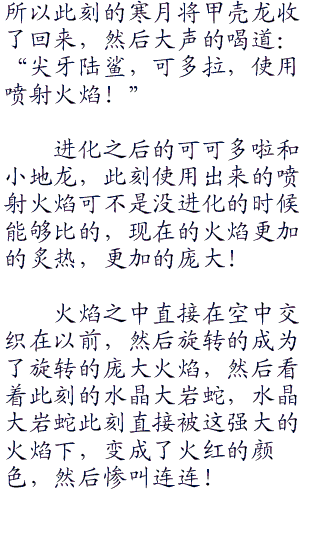 所以此刻的寒月将甲壳龙收
了回来，然后大声的喝道：
“尖牙陆鲨，可多拉，使用
喷射火焰！”
进化之后的可可多啦和
小地龙，此刻使用出来的喷
射火焰可不是没进化的时候
能够比的，现在的火焰更加
的炙热，更加的庞大！
火焰之中直接在空中交
织在以前，然后旋转的成为
了旋转的庞大火焰，然后看
着此刻的水晶大岩蛇，水晶
大岩蛇此刻直接被这强大的
火焰下，变成了火红的颜
色，然后惨叫连连！